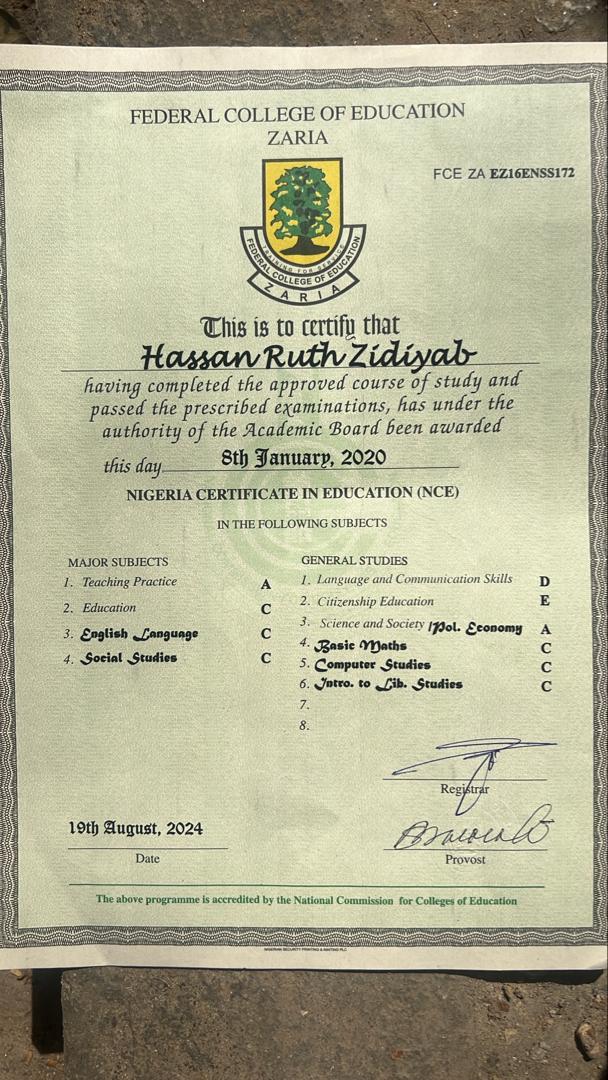 FEDERAL COLLEGE OF EDUCATION
ZARIA
FCE ZA EZ16ENSS172
TRAINING FOR SERVICE
FEDERAL COLLEGE OF EDUCATION
ZARIA
This is to certify that
Hassan Ruth Zidiyab
having completed the approved course of study and
passed the prescribed examinations, has under the
authority of the Academic Board been awarded
this day 8th January, 2020
NIGERIA CERTIFICATE IN EDUCATION (NCE)
IN THE FOLLOWING SUBJECTS
MAJOR SUBJECTS
1. Teaching Practice A
2. Education C
3. English Language C
4. Social Studies C
GENERAL STUDIES
1. Language and Communication Skills D
2. Citizenship Education E
3. Science and Society /Pol. Economy A
4. Basic Maths C
5. Computer Studies C
6. Intro. to Lib. Studies C
7.
8.
Registrar
19th August, 2024
Date
Provost
The above programme is accredited by the National Commission for Colleges of Education
NIGERIAN SECURITY PRINTING & MINTING PLC